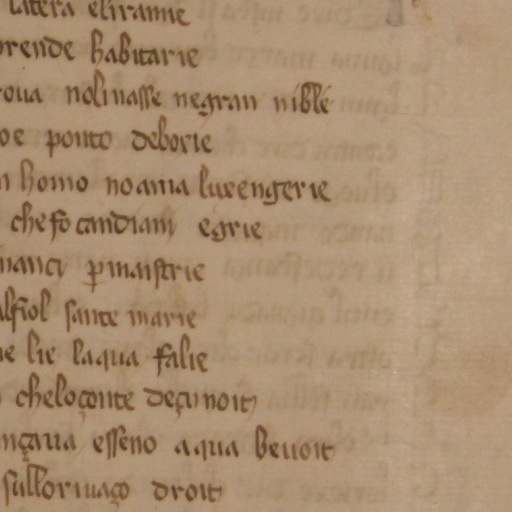 latera eliranne
prende habitarie
roua nolinasse negran nible
oe ponto deborie
n homo no ama luxengerie
che fo candiam egrie
nancy p maistrie
alfiol sante marie
ne lie laqua falie
cheloçonte deçunoit
nçaua esseno aqua beuoit
sullorivaço droit